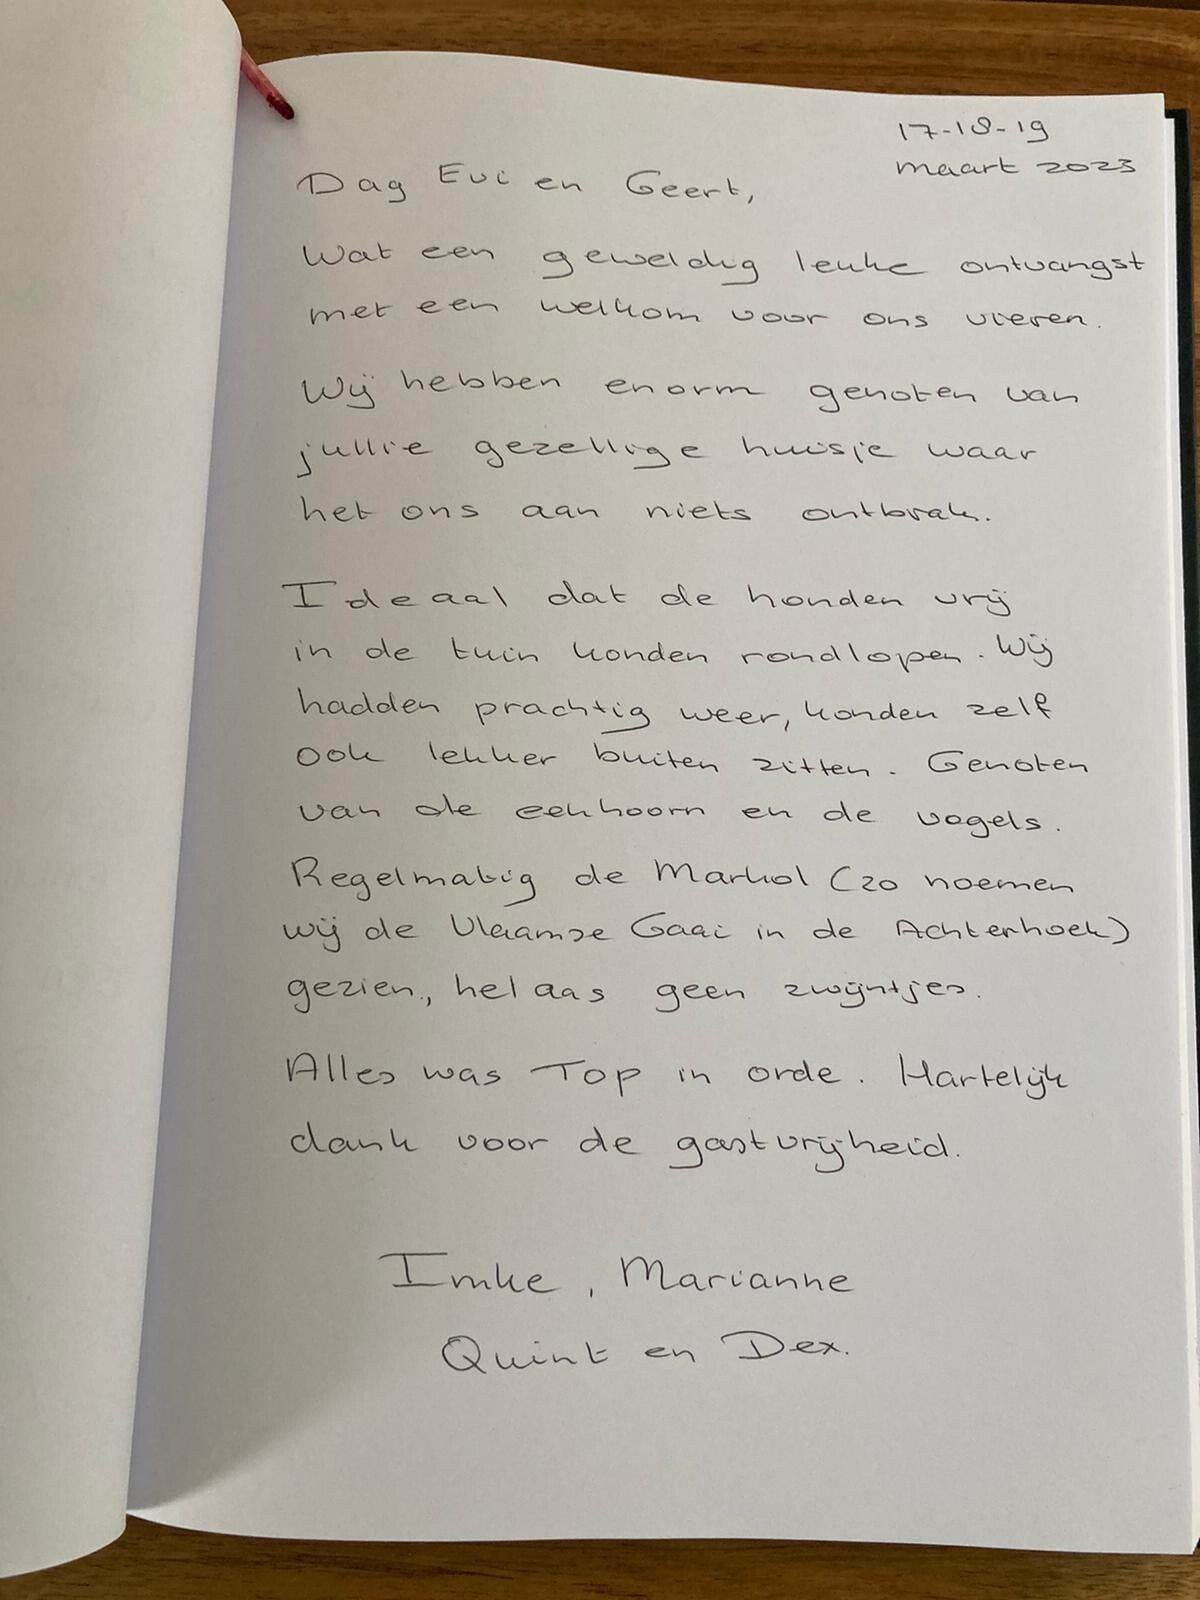 17-18-19
maart 2023
Dag Evi en Geert,
Wat een geweldig leuke ontvangst
met een welkom voor ons vieren.
Wij hebben enorm genoten van
jullie gezellige huisje waar
het ons aan niets ontbrak.
Ideaal dat de honden vrij
in de tuin konden rondlopen. Wij
hadden prachtig weer, konden zelf
ook lekker buiten zitten. Genoten
van de eenhoorn en de vogels.
Regelmatig de Markol (zo noemen
wij de Vlaamse Gaai in de Achterhoek)
gezien, helaas geen zwijntjes.
Alles was Top in orde. Hartelijk
dank voor de gastvrijheid.
Imke, Marianne
Quint en Dex.